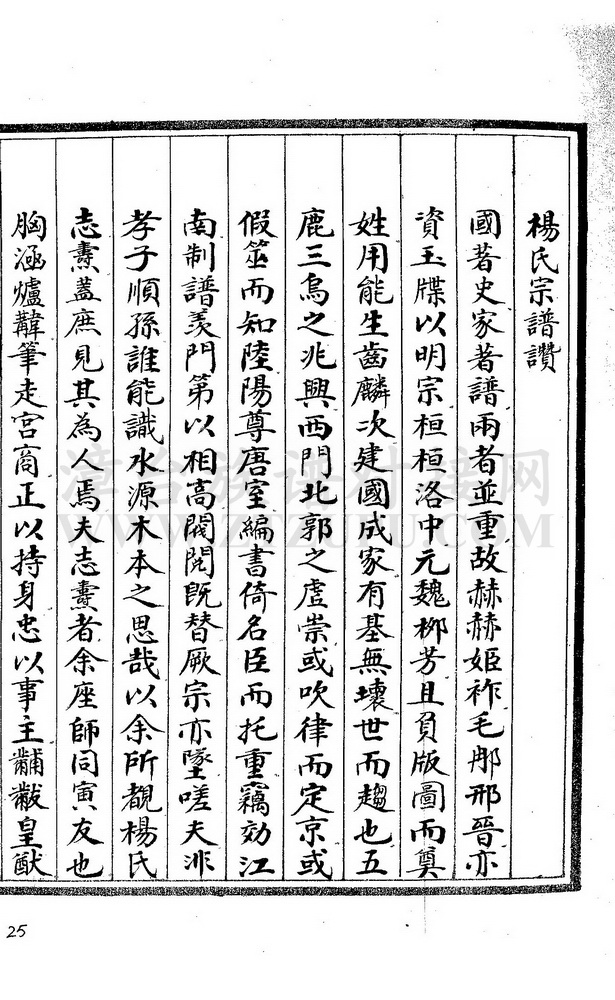 楊氏宗譜讚
國著史家著譜兩者並重故赫赫姬祚毛郍邢晉亦
資玉牒以明宗桓桓洛中元魏栁芳且負版圖而奠
姓用能生齒麟次建國成家有基無壞世而趨也五
鹿三烏之兆興西門北郭之虗崇或吹律而定京或
假筮而知陸陽尊唐室編書倚名臣而托重竊効江
南制譜羨門第以相高閥閱旣替厥宗亦墜嗟夫非
孝子順孫誰能識水源木本之思哉以余所覩楊氏
志燾蓋庶見其為人焉夫志燾者余座師同寅友也
胸涵爐鞴筆走宮商正以持身忠以事主黼黻皇猷
漳台族谱对接网
WWW.ZTZUPU.COM
25